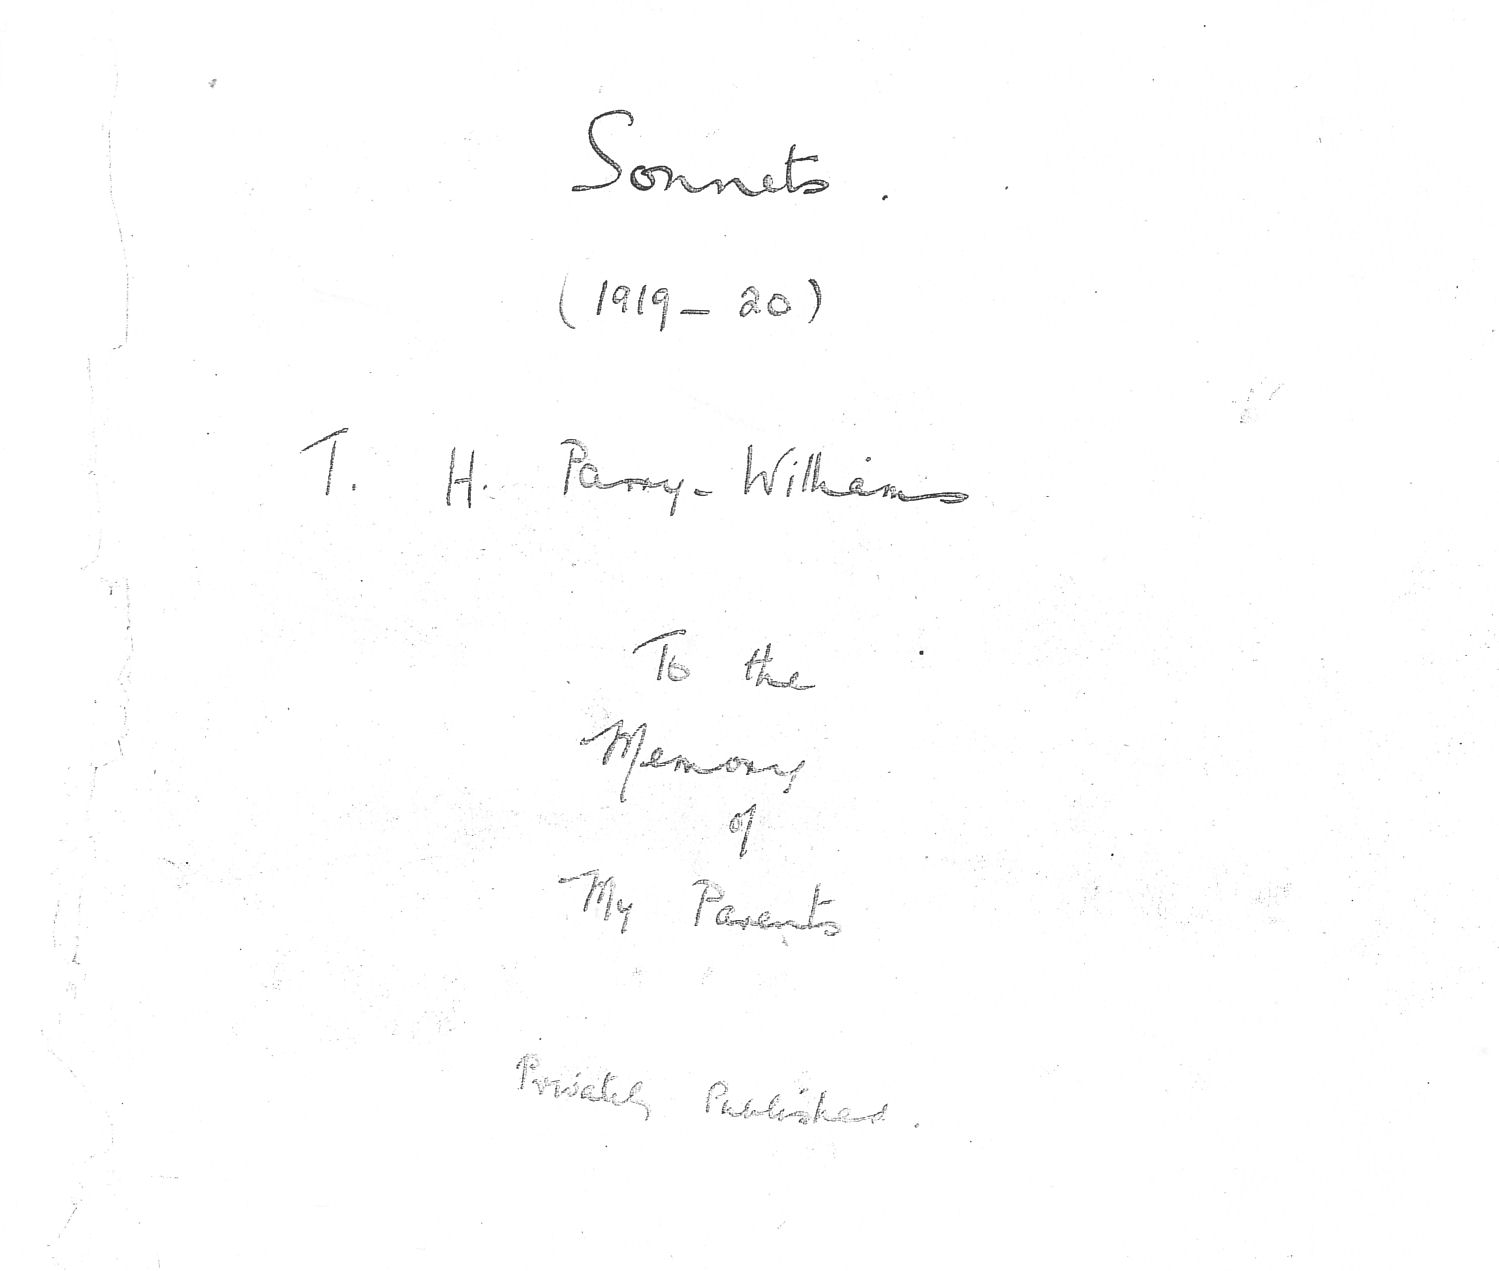 Sonnets.
(1919-20)
T. H. Parry-Williams
To the
Memory
of
My Parents
Privately Published.